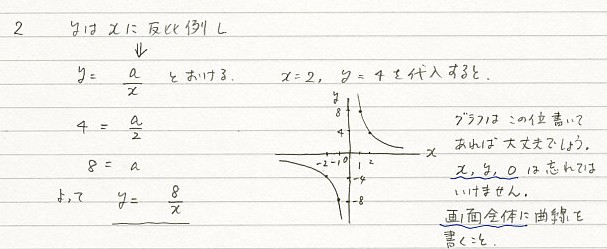 2 yはxに反比例し
⇓
y = a/x とおける. x=2, y=4を代入すると.
4 = a/2
8 = a
よって y = 8/x
y
8
4
-2 -1 0 1 2 x
-4
-8
グラフはこの位書いて
あれば大丈夫でしょう。
x, y, 0 は忘れては
いけません。
画面全体に曲線を
書くこと.